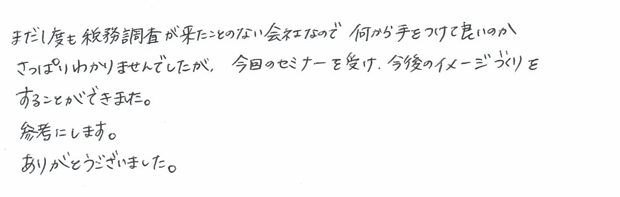 まだ1度も税務調査が来たことのない会社なので何から手をつけて良いのか
さっぱりわかりませんでしたが、今回のセミナーを受け、今後のイメージづくりを
することができました。
参考にします。
ありがとうございました。